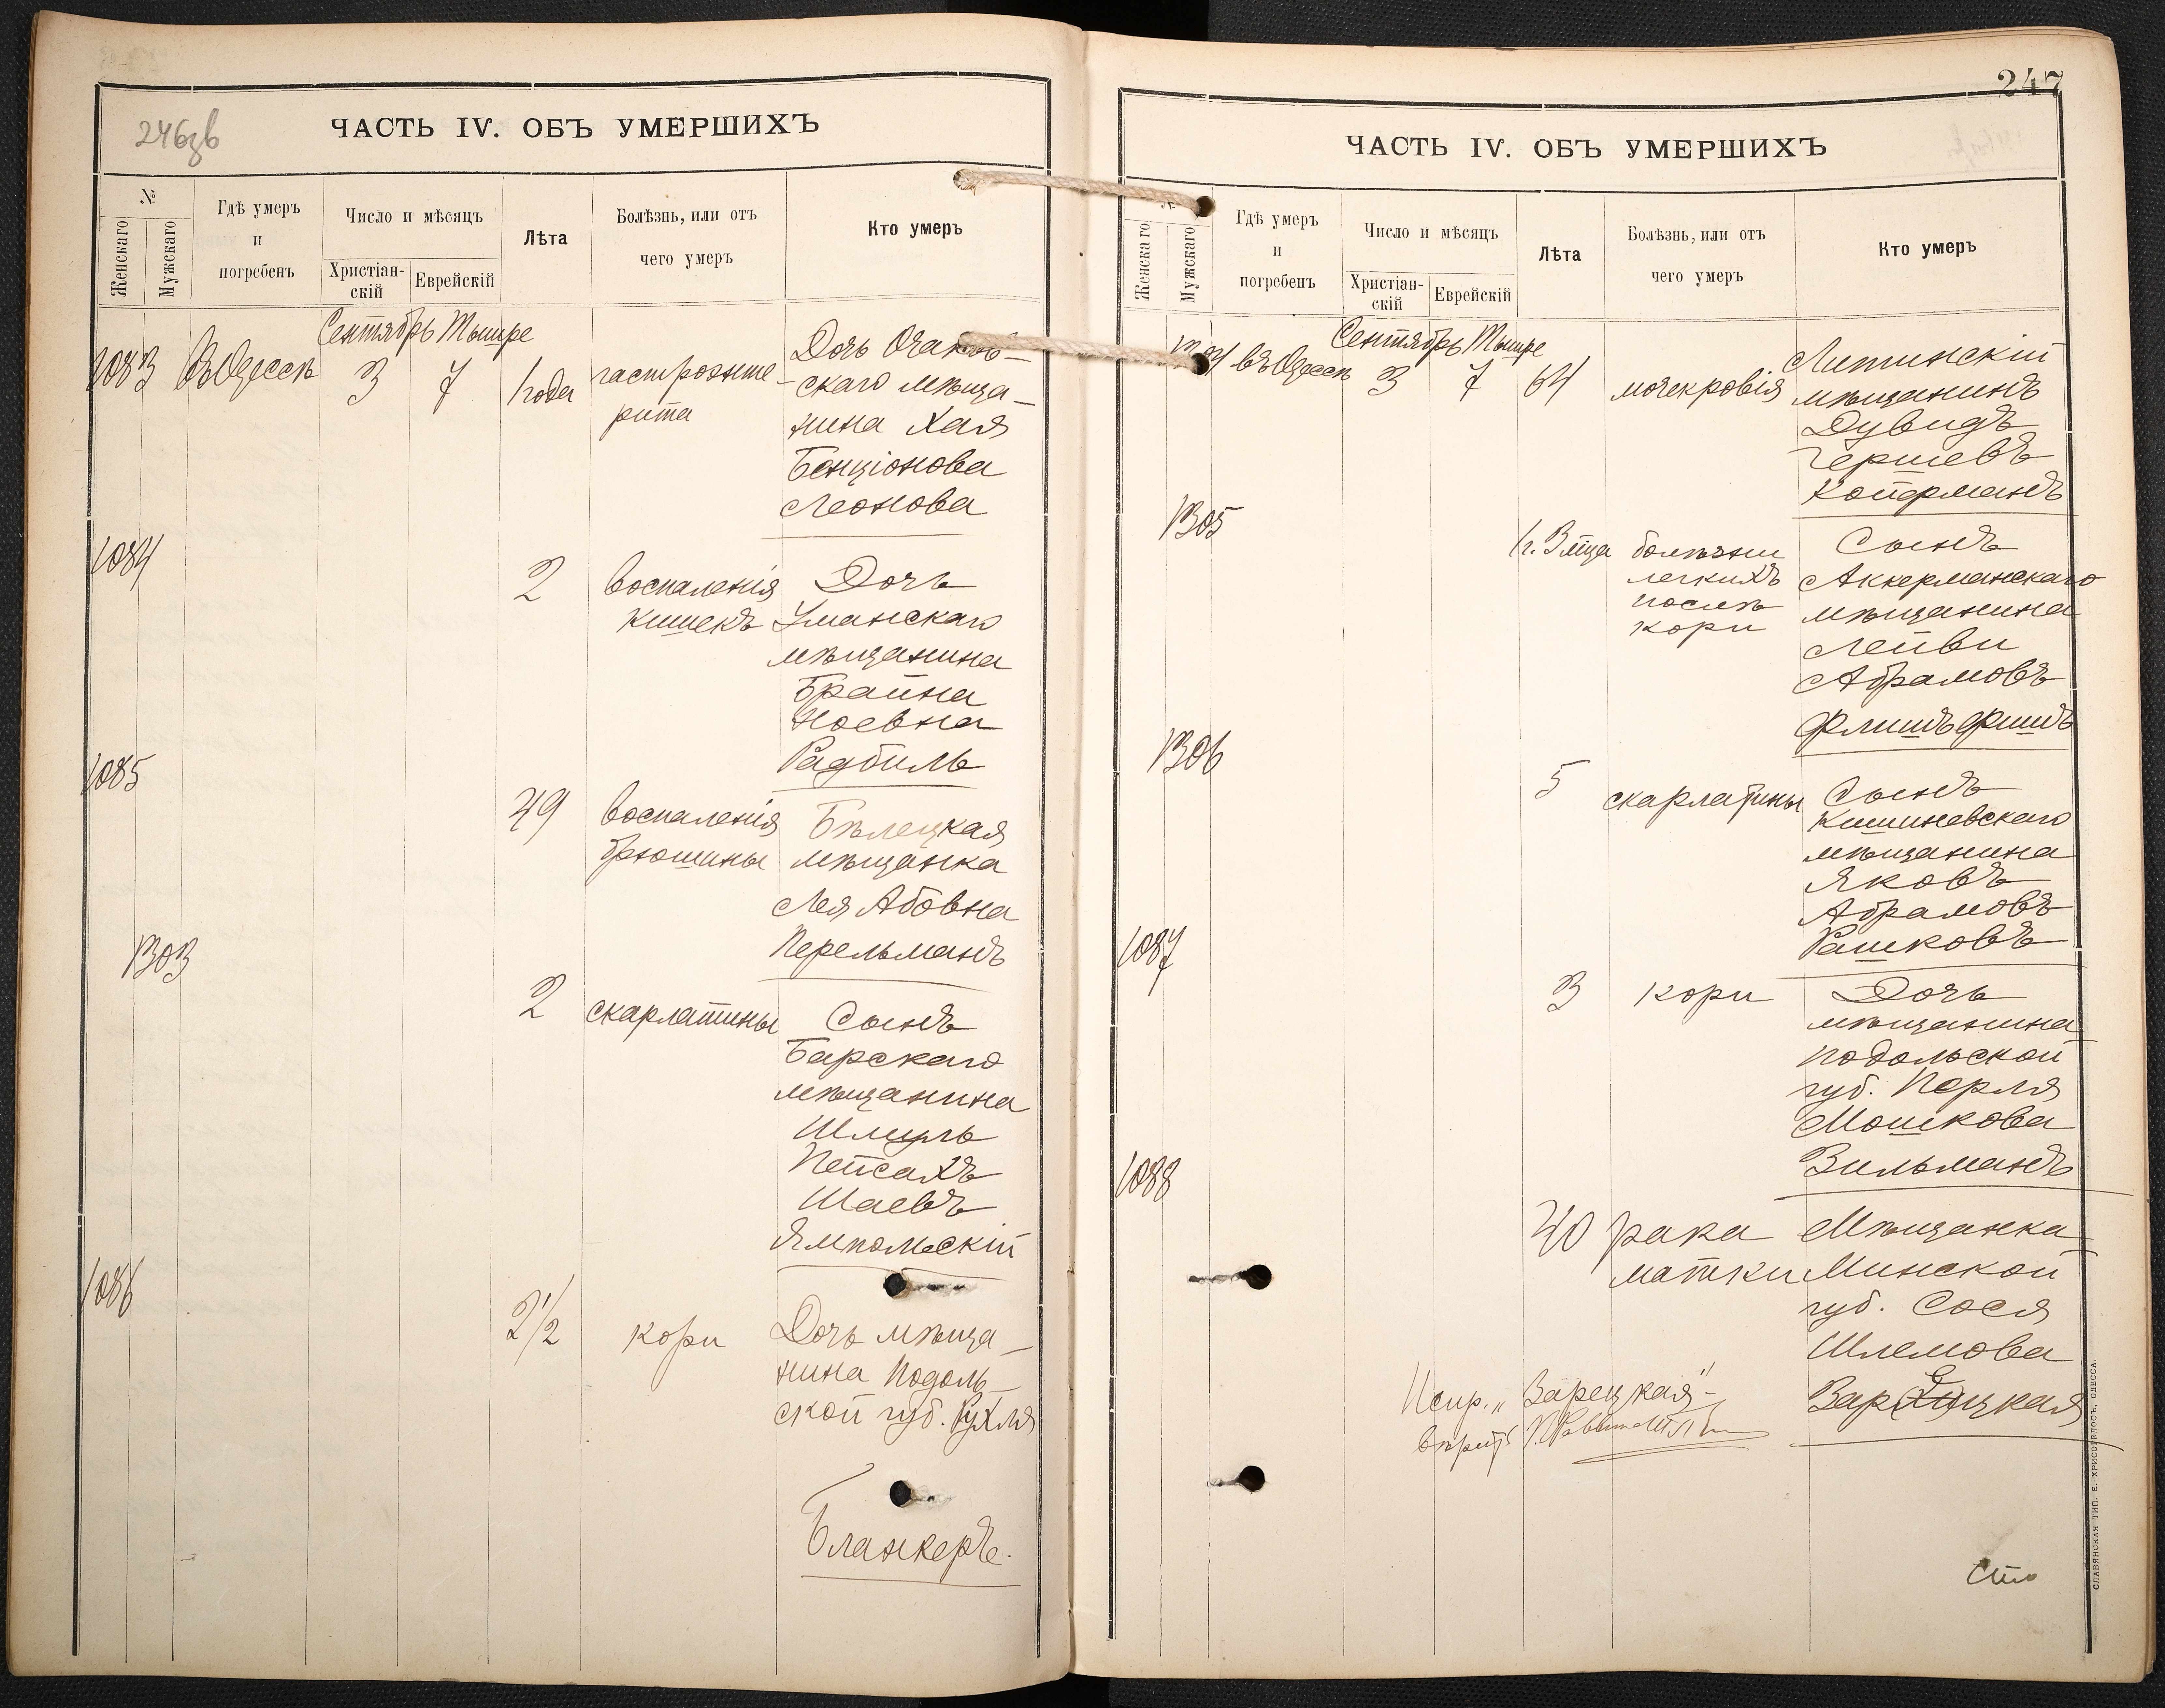 246зв
ЧАСТЬ IV. ОБЪ УМЕРШИХЪ
№
Женскаго
Мужскаго
Гдѣ умеръ
и
погребенъ
Число и мѣсяцъ
Христіан-
скій
Еврейскій
Лѣта
Болѣзнь, или отъ
чего умеръ
Кто умеръ
Сентябрь Тышре
1083 Въ Одессѣ 3 7 1 года
гастроэнте-
рита
Дочь Очаков-
скаго мѣща-
нина Хая
Бенціонова
Леонова
1084
2
воспаленія
кишекъ
Дочь
Уманскаго
мѣщанина
Брайна
Ноевна
Радбиль
1085
49
воспаленія
брюшины
Бѣлецкая
мѣщанка
Лея Абовна
Перельманъ
1303
2
скарлатины
Сынъ
Барскаго
мѣщанина
Шмуль
Пейсахъ
Шаевъ
Ямпольскій
1086
2 1/2
кори
Дочь мѣща-
нина Подоль-
ской губ. Рухля
Бланкеръ.
247
ЧАСТЬ IV. ОБЪ УМЕРШИХЪ
№
Женскаго
Мужскаго
Гдѣ умеръ
и
погребенъ
Число и мѣсяцъ
Христіан-
скій
Еврейскій
Лѣта
Болѣзнь, или отъ
чего умеръ
Кто умеръ
Сентябрь Тышре
1304 въ Одессѣ 3 7 64
мочекровія
Литинскій
мѣщанинъ
Дувидъ
Гершевъ
Койерманъ
1305
1 г. 3 мца
болѣзни
легкихъ
послѣ
кори
Сынъ
Аккерманскаго
мѣщанина
Лейви
Абрамовъ
Флишъ Фишъ
1306
5
скарлатины
Сынъ
Кишиневскаго
мѣщанина
Яковъ
Абрамовъ
Рашковъ
1087
3
кори
Дочь
мѣщанина
Подольской
губ. Перля
Мошкова
Зильманъ
1088
40
рака
матки
Мѣщанка
Минской
губ. Сося
Шлемова
Зарецкая
Испр. „Зарецкая"-
вѣритъ
Сто
СЛАВЯНСКАЯ ТИП. Е. ХРИСОГЕЛОСЪ, ОДЕССА.